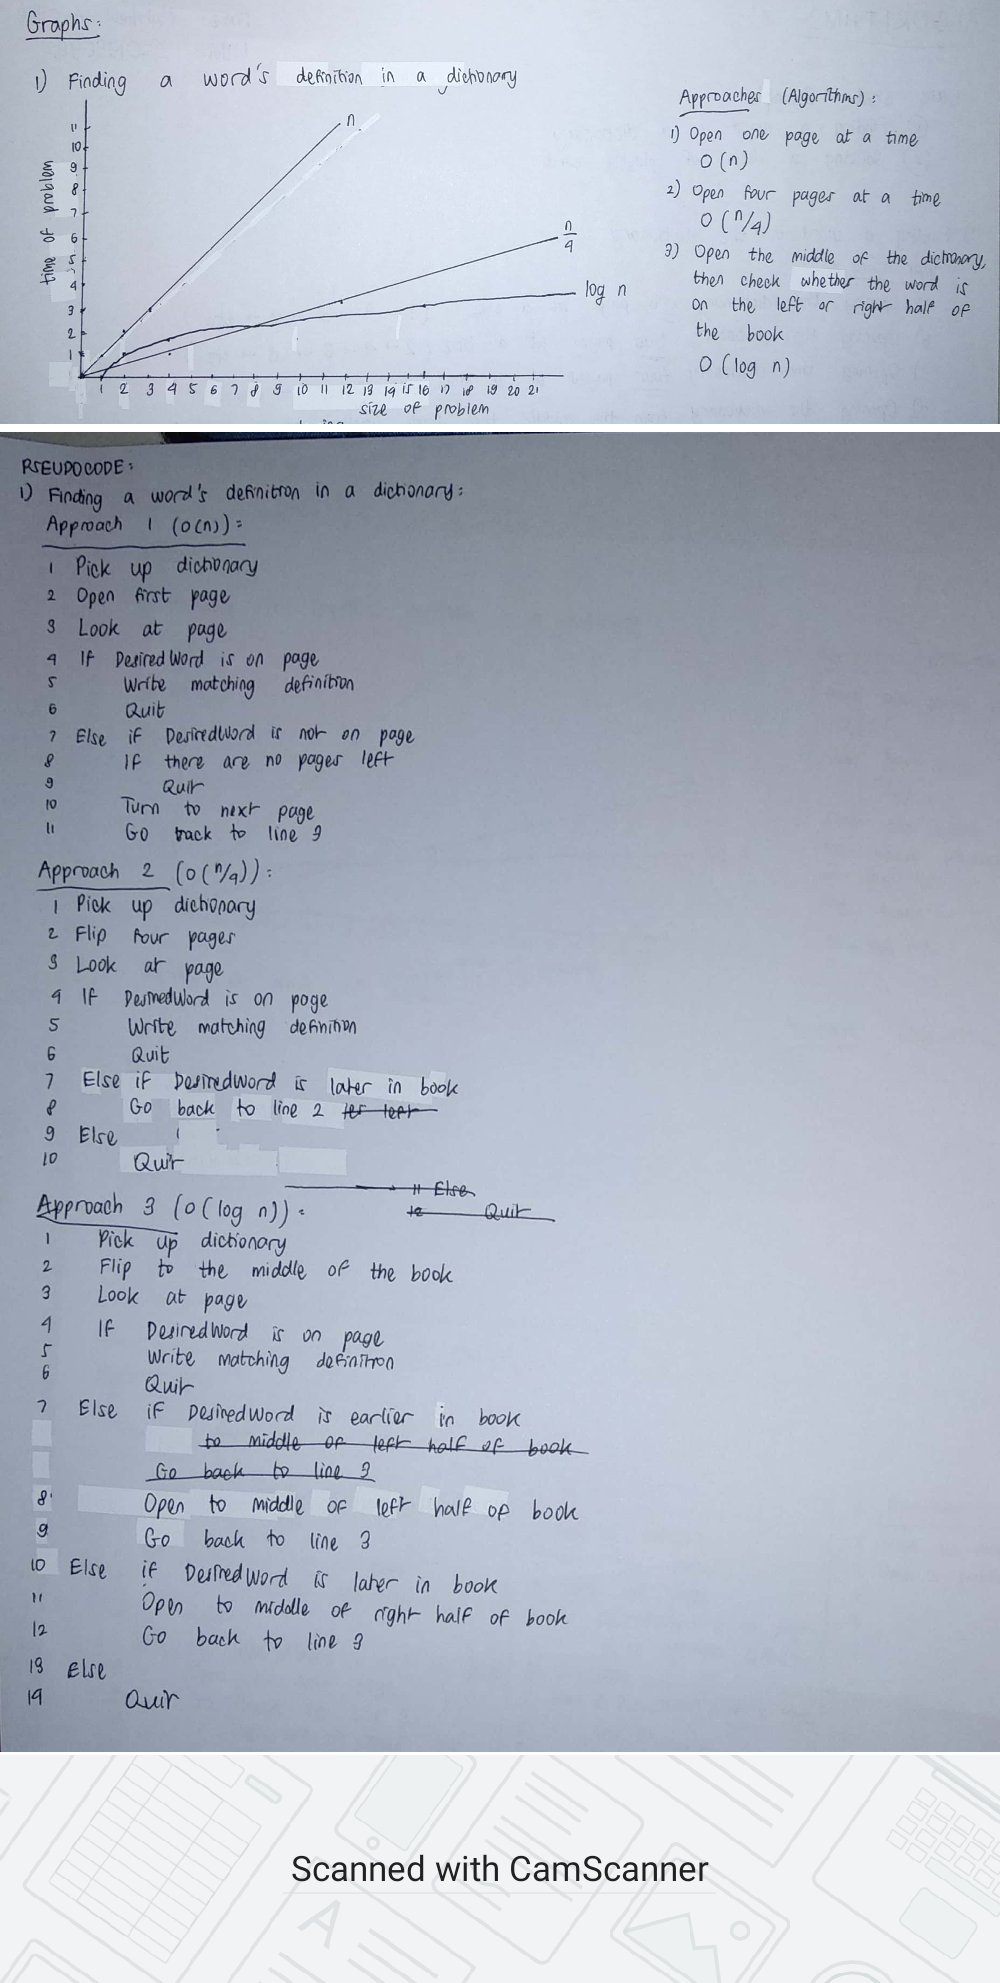 Graphs:
1) Finding a word's definition in a dictionary
time of problem
11
10
9
8
7
6
5
4
3
2
1
n
n/4
log n
1 2 3 4 5 6 7 8 9 10 11 12 13 14 15 16 17 18 19 20 21
size of problem
Approaches (Algorithms):
1) Open one page at a time
O (n)
2) Open four pages at a time
O (n/4)
3) Open the middle of the dictionary,
then check whether the word is
on the left or right half of
the book
O (log n)
PSEUDOCODE:
1) Finding a word's definition in a dictionary:
Approach 1 (O(n)):
1 Pick up dictionary
2 Open first page
3 Look at page
4 If DesiredWord is on page
5 Write matching definition
6 Quit
7 Else if DesiredWord is not on page
8 If there are no pages left
9 Quit
10 Turn to next page
11 Go back to line 3
Approach 2 (O(n/4)):
1 Pick up dictionary
2 Flip four pages
3 Look at page
4 If DesiredWord is on page
5 Write matching definition
6 Quit
7 Else if DesiredWord is later in book
8 Go back to line 2 left
9 Else
10 Quit
11 Else
Quit
Approach 3 (O(log n)):
1 Pick up dictionary
2 Flip to the middle of the book
3 Look at page
4 If DesiredWord is on page
5 Write matching definition
6 Quit
7 Else if DesiredWord is earlier in book
to middle of left half of book
Go back to line 3
8 Open to middle of left half of book
9 Go back to line 3
10 Else if DesiredWord is later in book
11 Open to middle of right half of book
12 Go back to line 3
13 Else
14 Quit
Scanned with CamScanner